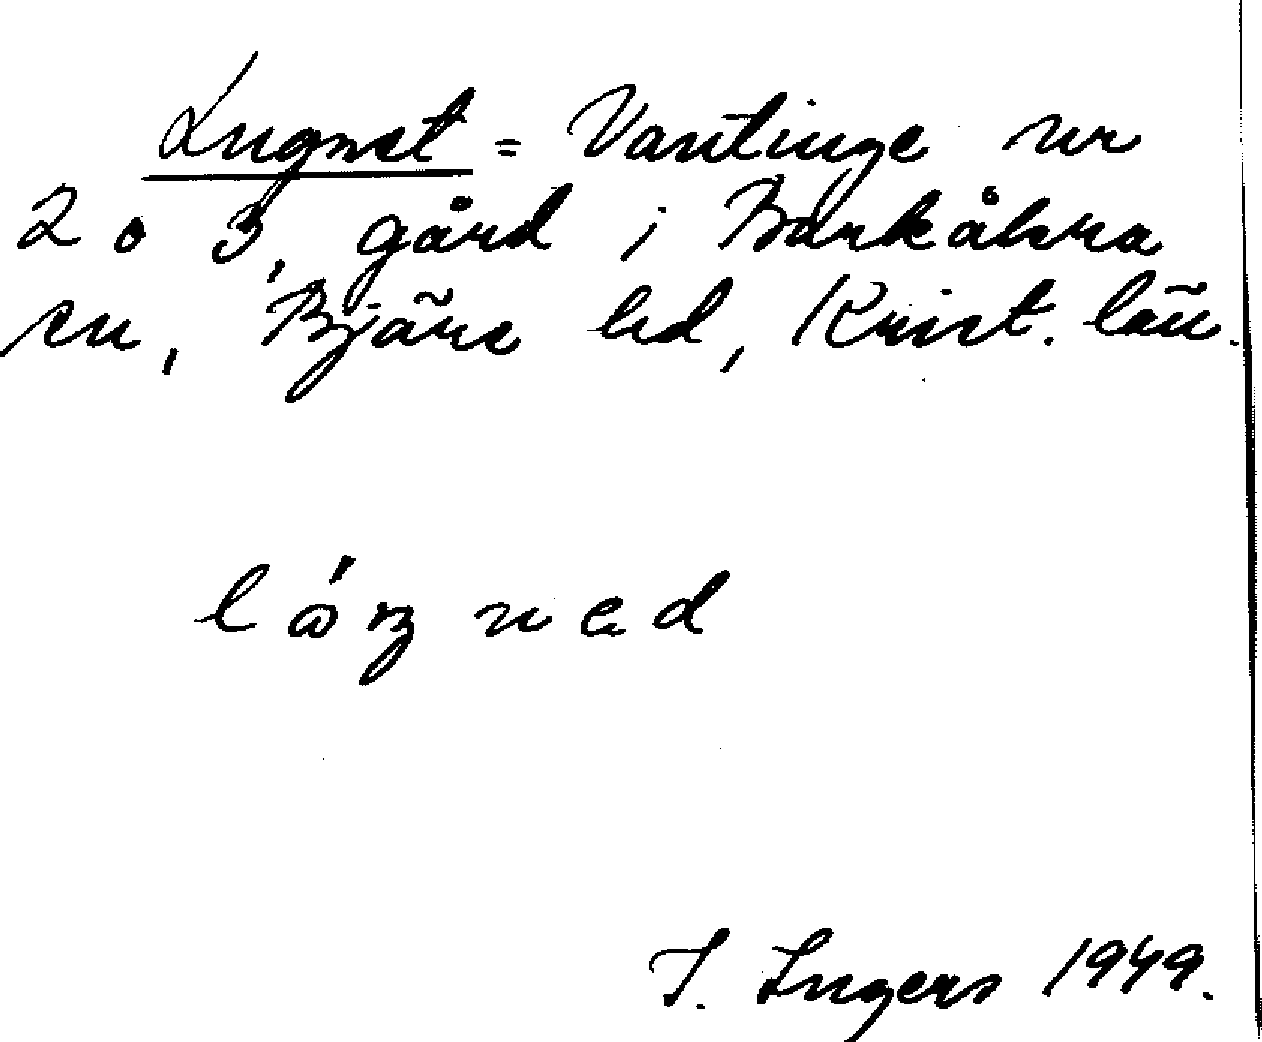 Lugnet = Vantinge nr
2 o 3, gård i Barkåkra
sn, Bjäre hd, Krist. län.
lóŋned
I. Ingers 1949.